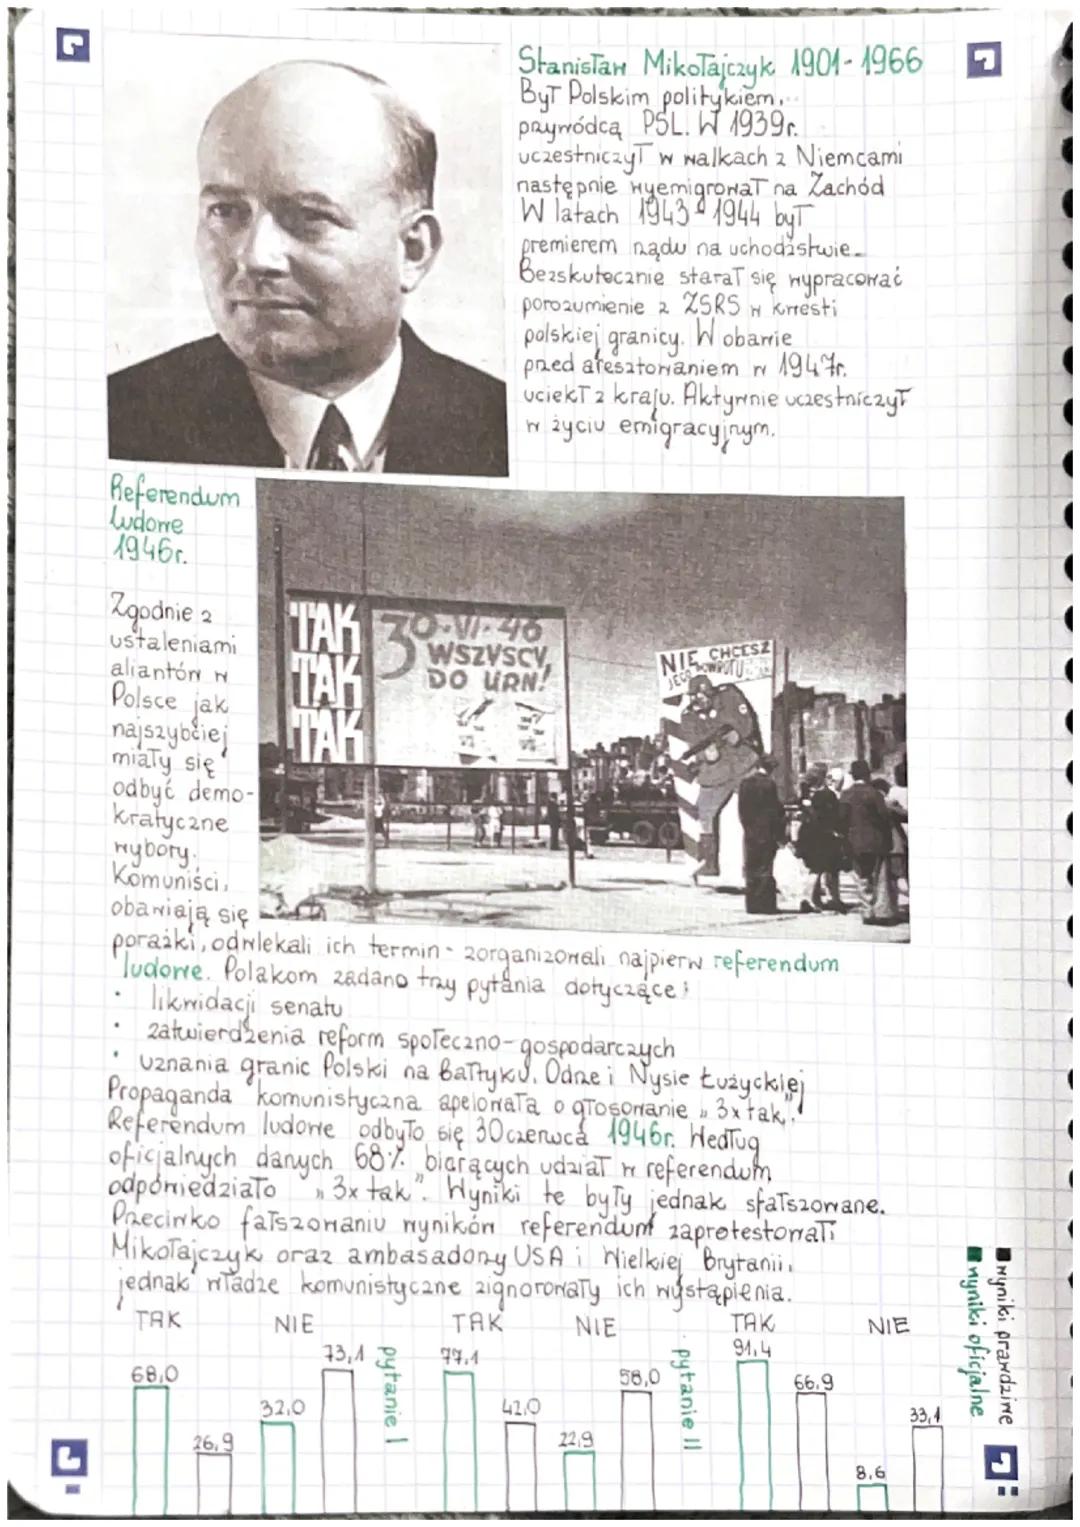 Stanisław Mikołajczyk 1901-1966
Był Polskim politykiem,
przywódcą PSL. W 1939r.
uczestniczył w walkach z Niemcami
następnie wyemigrował na Zachód
W latach 1943-1944 był
premierem rządu na uchodźstwie.
Bezskutecznie starał się wypracować
porozumienie z ZSRS w kwesti
polskiej granicy. W obawie
przed aresztowaniem w 1947r.
uciekł z kraju. Aktywnie uczestniczył
w życiu emigracyjnym.
Referendum
ludowe
1946r.
TAK
TAK
TAK
30·VI·46
WSZYSCY,
DO URN!
NIE CHCESZ
JEGO POWROTU
Zgodnie z
ustaleniami
aliantów w
Polsce jak
najszybciej
miały się
odbyć demo-
kratyczne
wybory.
Komuniści,
obawiają się
porażki, odwlekali ich termin - zorganizowali najpierw referendum
ludowe. Polakom zadano trzy pytania dotyczące:
• likwidacji senatu
• zatwierdzenia reform społeczno-gospodarczych
• uznania granic Polski na Bałtyku, Odrze i Nysie Łużyckiej
Propaganda komunistyczna apelowała o głosowanie „3x tak".
Referendum ludowe odbyło się 30 czerwca 1946r. Według
oficjalnych danych 68% biorących udział w referendum
odpowiedziało „3x tak". Wyniki te były jednak sfałszowane.
Przeciwko fałszowaniu wyników referendum zaprotestowali
Mikołajczyk oraz ambasadorzy USA i Wielkiej Brytanii,
jednak władze komunistyczne zignorowały ich wystąpienia.
TAK NIE TAK NIE TAK NIE
68,0 26,9 32,0 73,1 pytanie I
77,1 42,0 22,9 58,0 pytanie II
91,4 66,9 8,6 33,1
wyniki prawdziwe
wyniki oficjalne